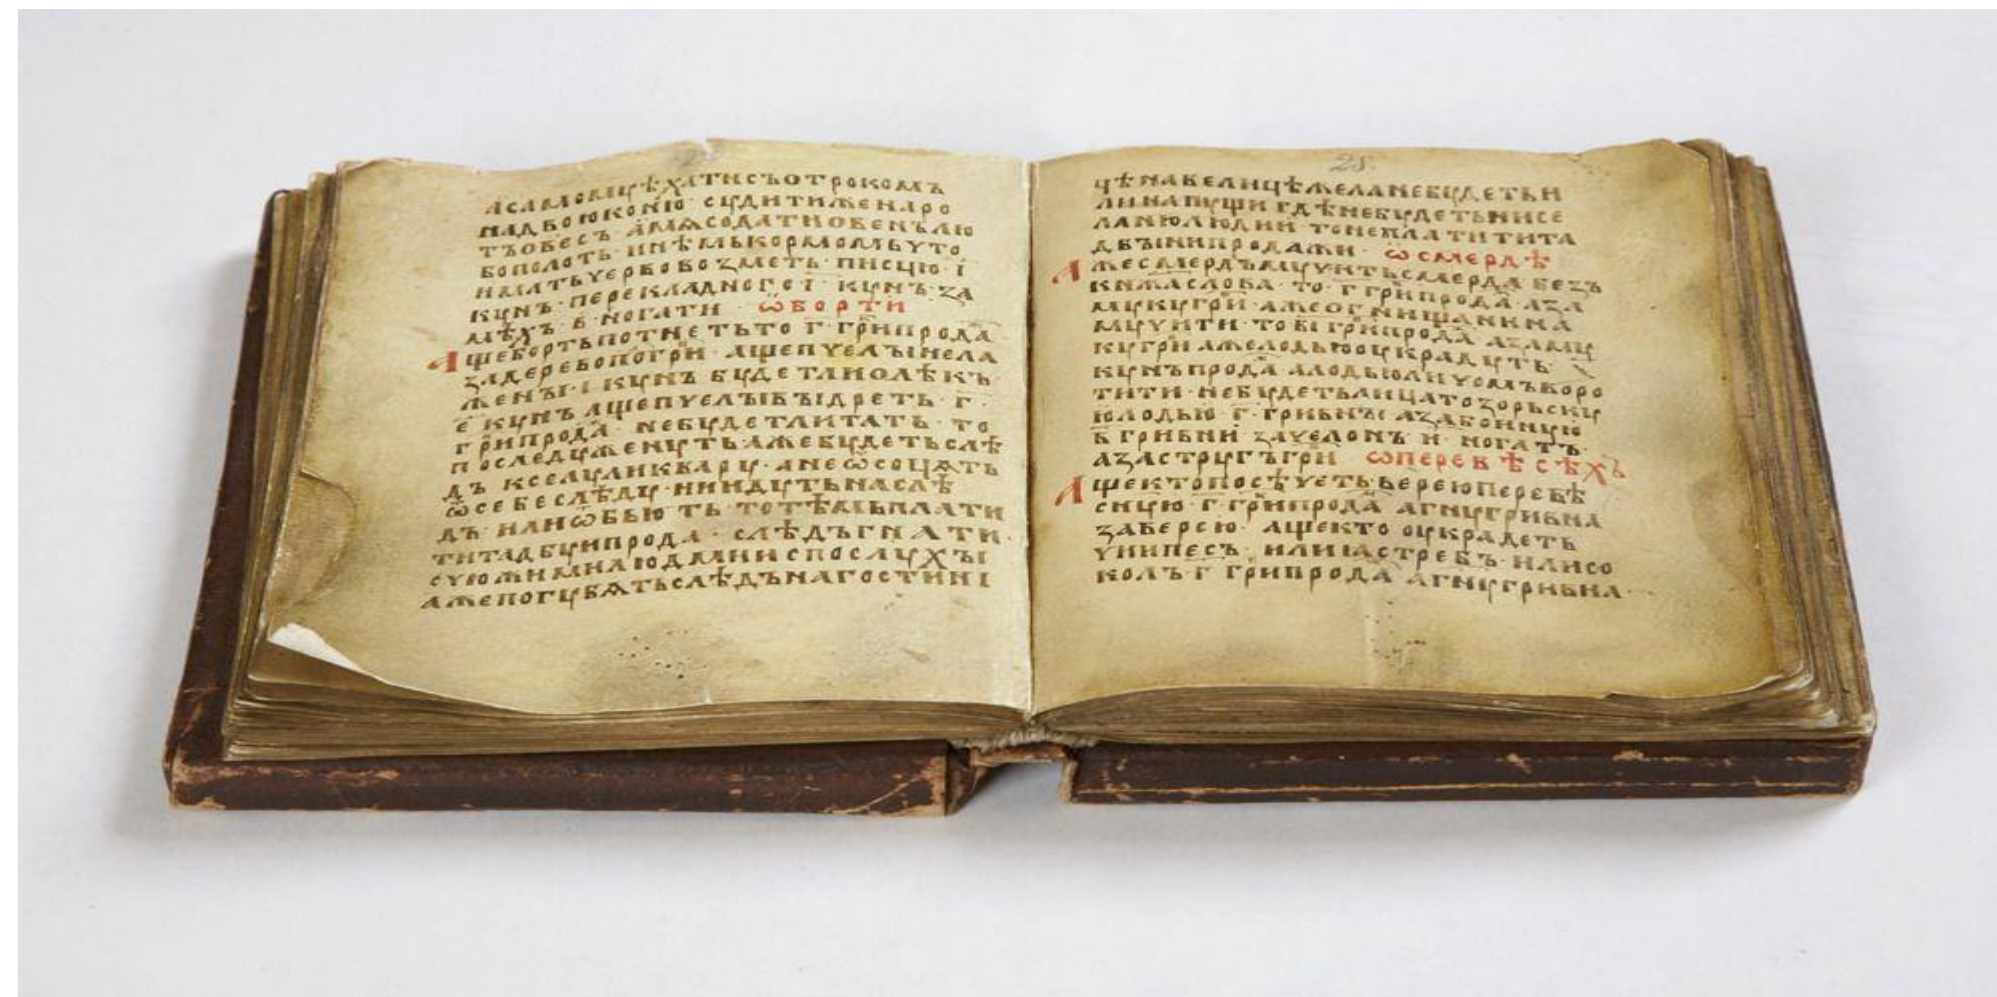 асамомꙋѣхатисъотрокомъ
надвоюконю сꙋдитиженаро
тъовесъ амѧсодатиовенълю
бополоть инѣмькормомьꙋто
иматьчеревобозметь писцю і҃
кꙋнъ перекладного і҃ кꙋнъ за
мѣхъ в҃ ногати ѿборти
Ащебортьпотнетьто г҃ гр҃ипрода
задеревополгр҃и ащепчелꙑнела
женꙑ і҃ кꙋнъ бꙋдетлиолѣкъ
е҃ кꙋнъ ащепчелꙑвꙑдреть г҃
гр҃ипрода небꙋдетлитать то
последꙋженꙋтьажебꙋдетьслѣ
дъ кселꙋликварꙋ анеѿсоцѧть
ѿсебеслѣдꙋ нинидꙋтьнаслѣ
дъ илиѿбьють тотѣмьплати
титадбꙋипрода слѣдъгнати
счюжимилюдминспослꙋхꙑ
ажепогꙋбѧтьслѣдънагостинı
28.
чѣнавелицѣжеланебꙋдетьи
линапꙋщигдѣнебꙋдетьнисе
ланюлюдии тонеплатитита
двꙑнипродажи ѿсмердѣ
Ажесмердъмꙋчитьсмердабезъ
кнжаслова то г҃ гр҃ипрода аза
мꙋкꙋгр҃и ажеогнищанина
мꙋчити тові҃гр҃ипрода азамꙋ
кꙋгр҃и ажелодьюоукрадꙋть
кꙋнъпрода алодьюличомъворо
тити небꙋдетьлицатозорьскꙋ
юлодью г҃ гривнꙑ азабоинꙋю
в҃ гривни зачелонъ и҃ ногатъ
азастрꙋгъгр҃и ѡперевѣсѣхъ
Ащектопосѣчетьвереюперевѣ
сиꙋю г҃ гр҃ипрода агнꙋгривна
заверею ащекто оукрадеть
чиипесъ илиꙗстребъ илисо
колъ г҃ гр҃ипрода агнꙋгривна